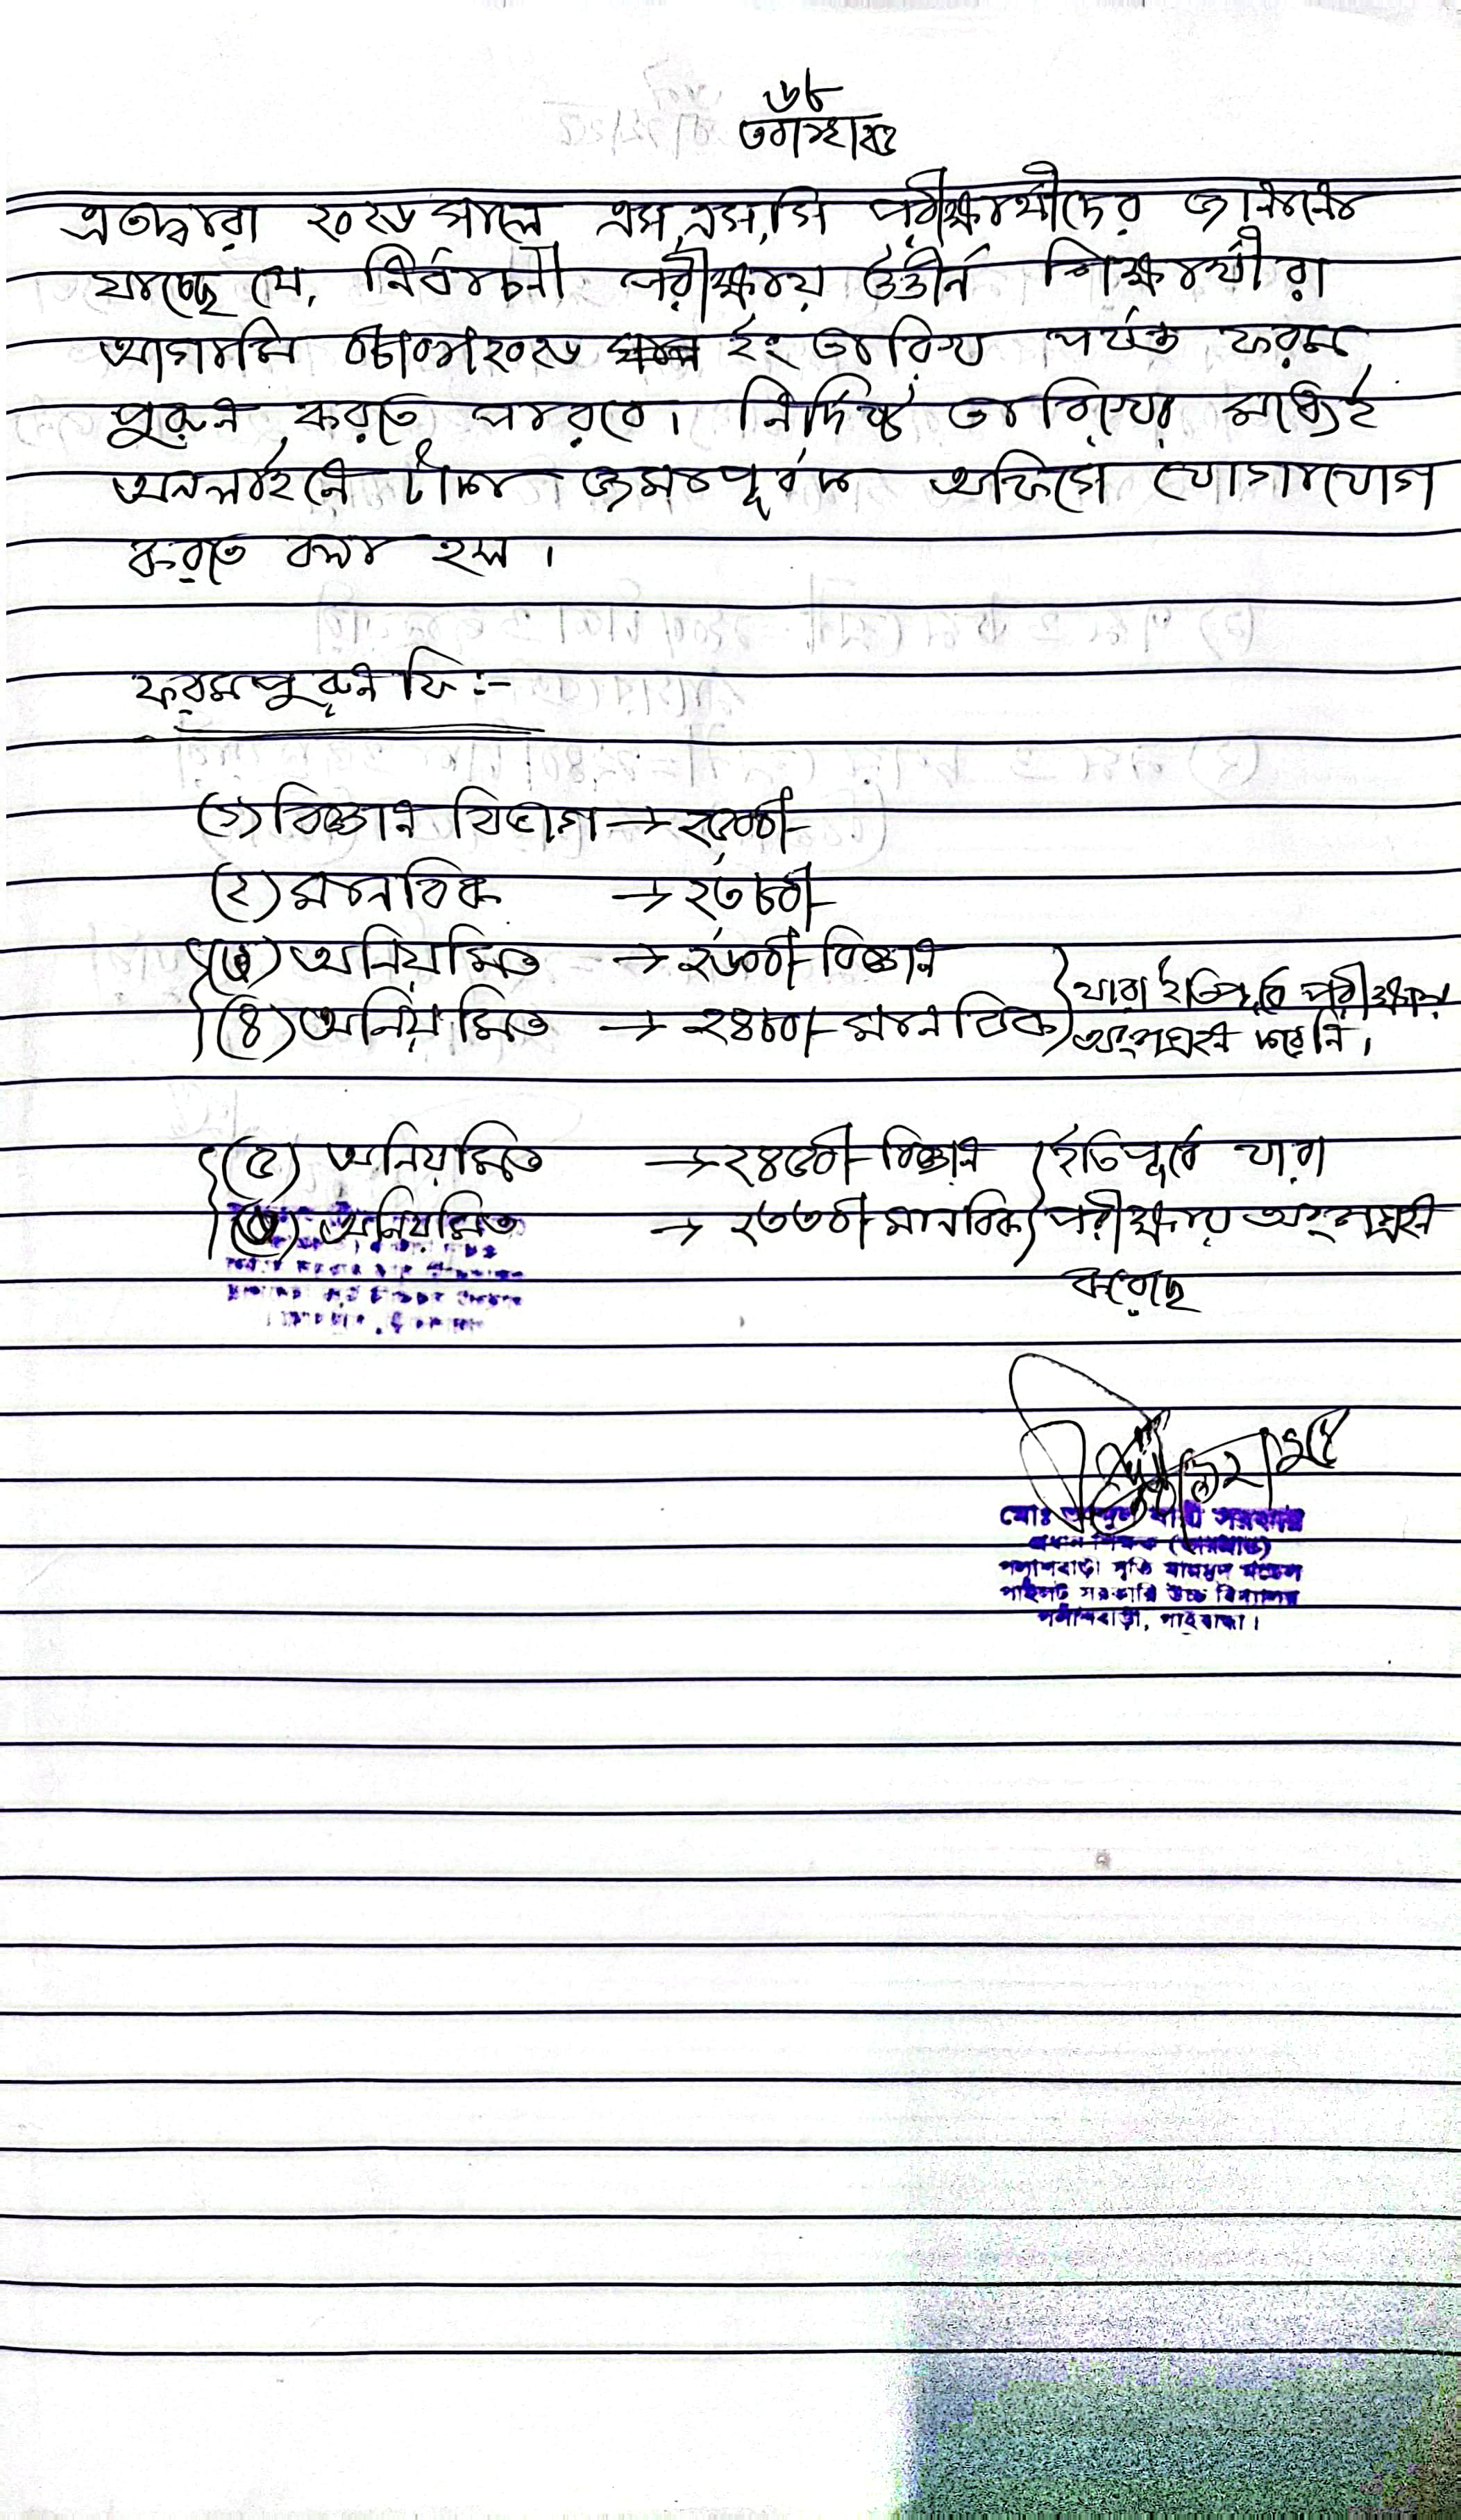 ৬৮
৩০/১২/২৫
এতদ্বারা ২০২৬ সালে এস,এস,সি পরীক্ষার্থীদের জানানো
যাচ্ছে যে, নির্বাচনী পরীক্ষায় উর্ত্তীর্ন শিক্ষার্থীরা
আগামি ২০২৬ ইং তারিখ পর্যন্ত ফরম
পুরুন করতে পারবে। নির্দিষ্ট তারিখের মধ্যেই
অনলাইনে টাকা জমাপূর্বক অফিসে যোগাযোগ
করতে বলা হল।
ফরমপুরুন ফি :-
(১) বিজ্ঞান বিভাগ → ২৫০০/-
(২) মানবিক → ২৩৮০/-
(৩) অনিয়মিত → ২৬০০/- বিজ্ঞান
(৪) অনিয়মিত → ২৪৮০/- মানবিক
যারা ইতিপূর্বে পরীক্ষায়
অংশগ্রহন করেনি।
(৫) অনিয়মিত → ২৪৫০/- বিজ্ঞান
(৬) অনিয়মিত → ২৩৩০/- মানবিক
ইতিপূর্বে যারা
পরীক্ষায় অংশগ্রহন
করেছে
মোঃ সরকার
প্রধান শিক্ষক (ভারপ্রাপ্ত)
পলাশবাড়ী মডেল
পাইলট সরকারি উচ্চ বিদ্যালয়
পলাশবাড়ী, গাইবান্ধা।